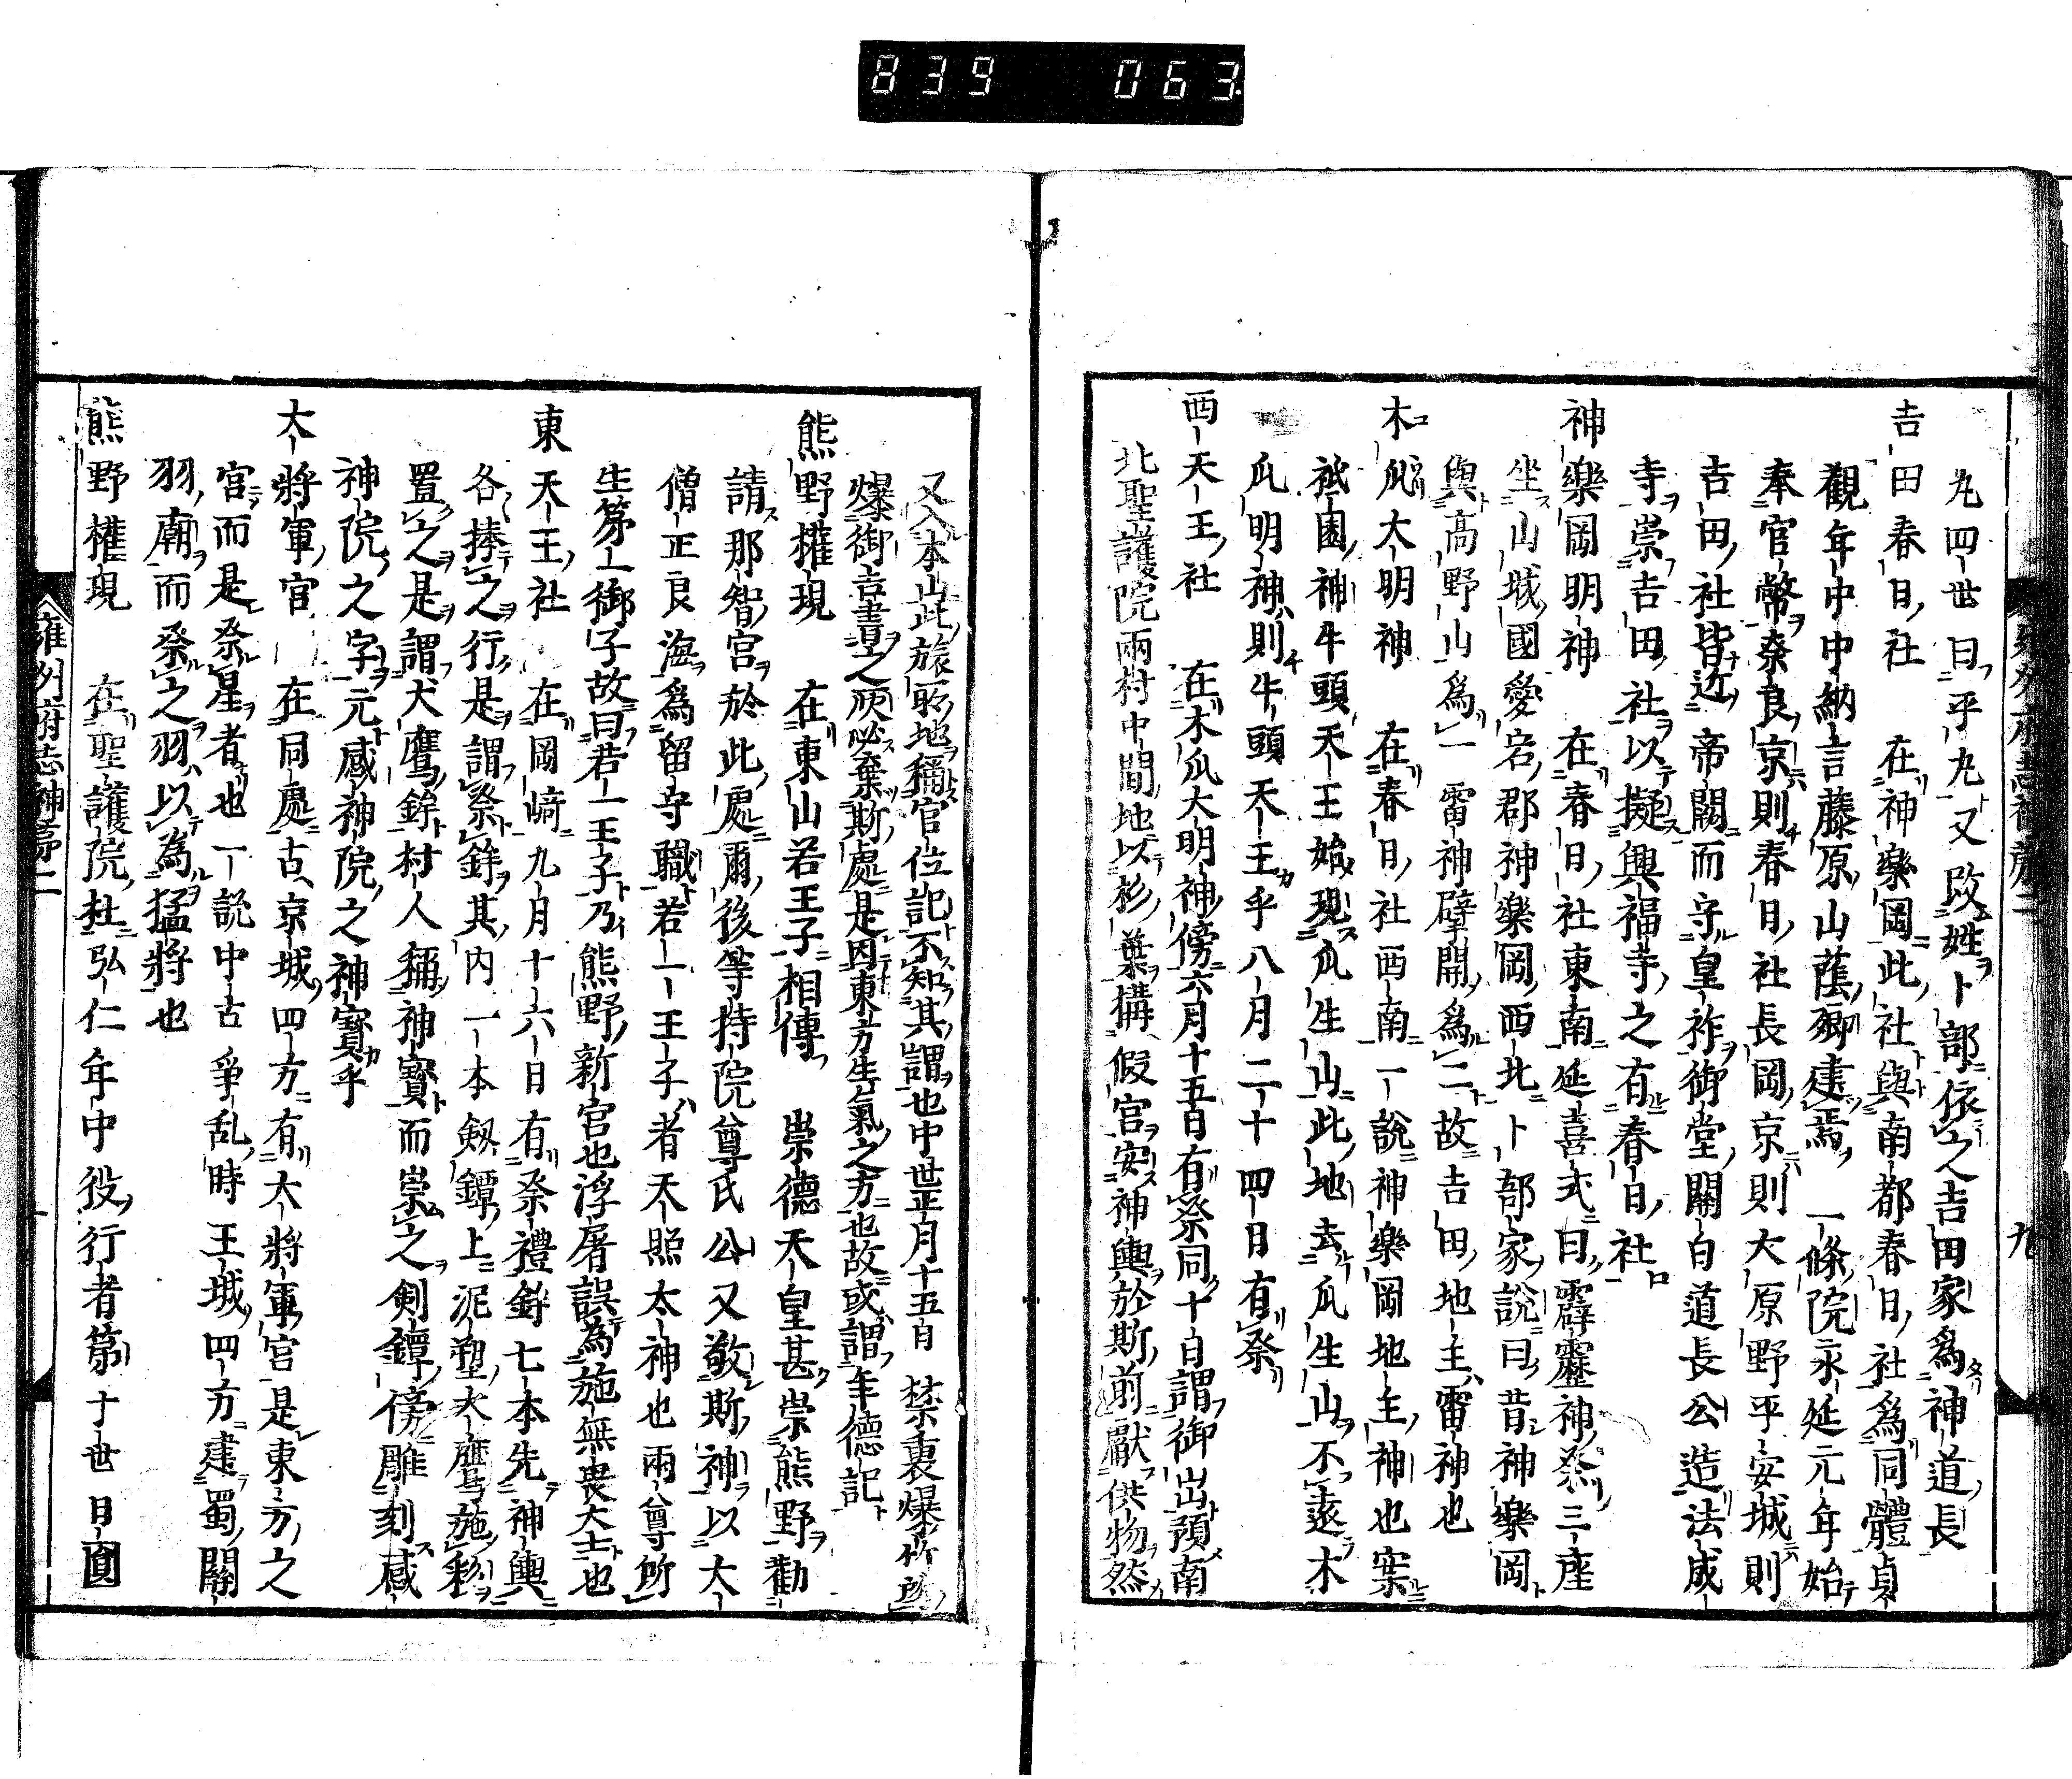 839 063
雍州府志神章二
九
丸四世曰平丸又改姓卜部依之吉田家爲神道長
吉田春日社 在神樂岡此社與南都春日社爲同體貞
觀年中中納言藤原山蔭卿建焉一條院永延元年始
奉官幣奈良京則春日社長岡京則大原野平安城則
吉田社皆近帝闕而守皇祚御堂關白道長公造法成
寺崇吉田社以擬興福寺之有春日社
神樂岡明神 在春日社東南延喜式曰霹靂神祭三座
坐山城國愛宕郡神樂岡西北卜部家說曰昔神樂岡
與高野山爲一雷神擘開爲二故吉田地主雷神也
木瓜大明神 在春日社西南一說神樂岡地主神也案
祇園神牛頭天王始現瓜生山此地去瓜生山不遠木
瓜明神則牛頭天王乎八月二十四日有祭
西天王社 在木瓜大明神傍六月十五日有祭同十日謂御出預南
北聖護院兩村中間地以杉葉構假宮安神輿於斯前獻供物然
又入本山此旅所地稱官位記不知其謂也中世正月十五日禁裏爆竹所
爆御吉書之灰必棄斯處是因東方生氣之方也故或謂年德記
熊野權現 在東山若王子相傳 崇德天皇甚崇熊野勸
請那智宮於此處爾後等持院尊氏公又敬斯神以大
僧正良海爲留守職若一王子者天照太神也兩尊所
生第一御子故曰若一王子乃熊野新宮也浮屠誤為施無畏大士也
東天王社 在岡崎九月十六日有祭禮鉾七本先神輿
各捧之行是謂祭鉾其內一本劔鐔上泥塑犬鷹施彩
置之是謂犬鷹鉾村人稱神寶而崇之剣鐔傍雕刻感
神院之字元感神院之神寶乎
大將軍宮 在同處古京城四方有大將軍宮是東方之
宮而是祭星者也一說中古爭乱時王城四方建蜀關
羽廟而祭之羽以為猛將也
熊野權現 在聖護院杜弘仁年中役行者第十世日圓
雍州府志神章二